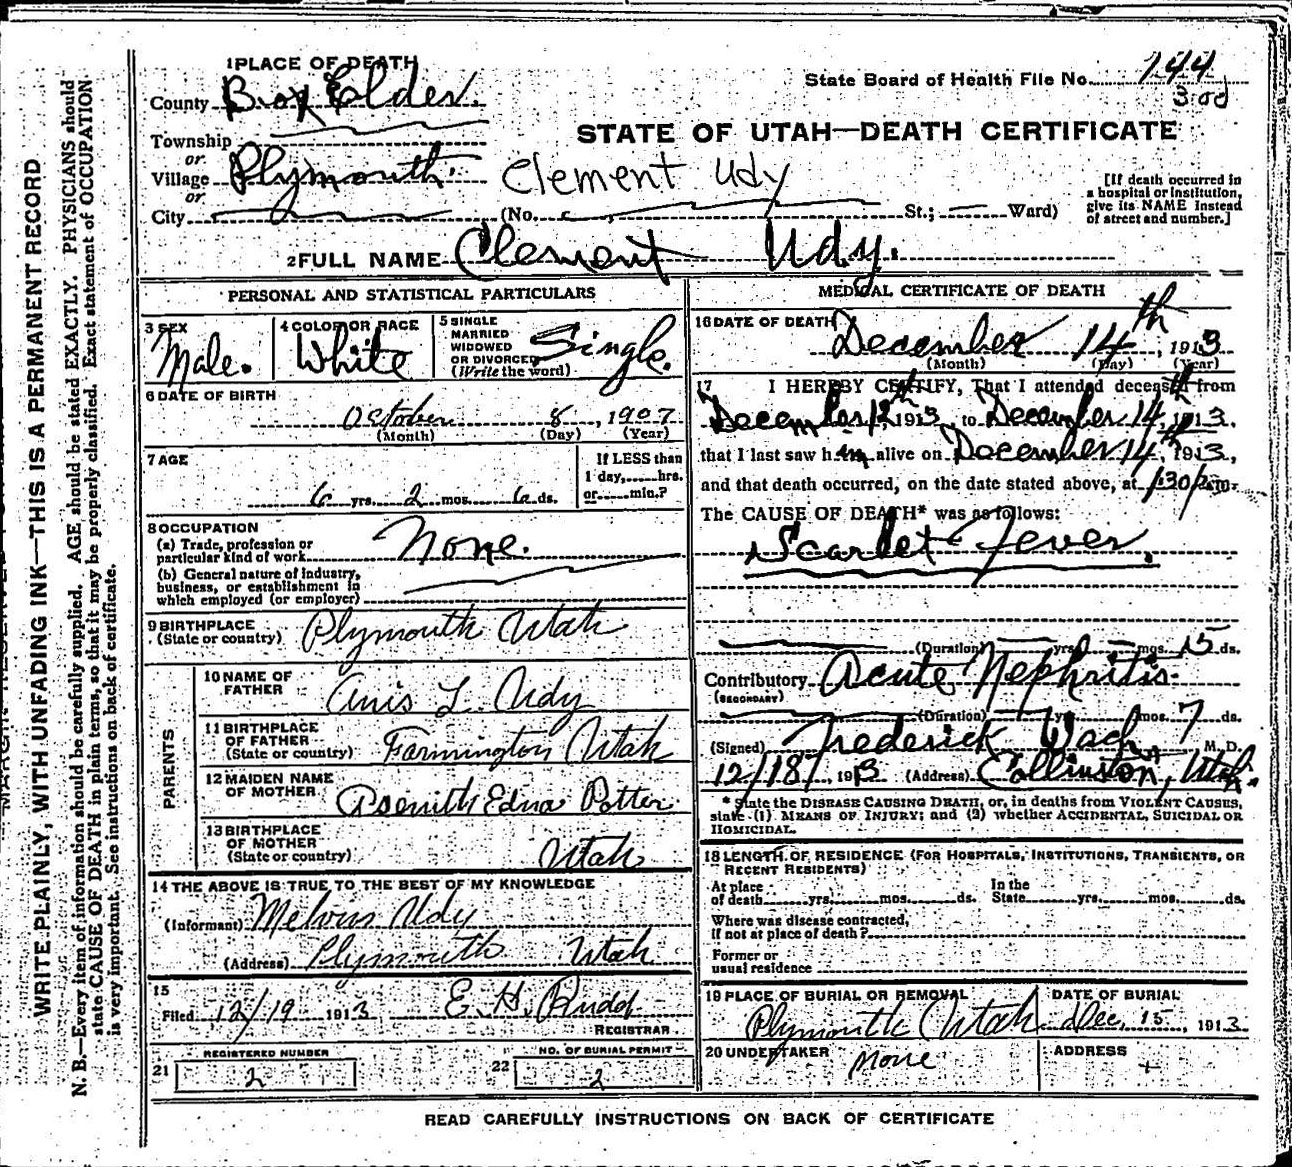 1 PLACE OF DEATH
State Board of Health File No. 144
County Box Elder.
Township
STATE OF UTAH—DEATH CERTIFICATE
or
Village Plymouth. Clement Udy
or
City (No. St.; Ward)
[If death occurred in
a hospital or institution,
give its NAME instead
of street and number.]
2 FULL NAME Clement Udy.
PERSONAL AND STATISTICAL PARTICULARS
3 SEX
Male.
4 COLOR OR RACE
White
5 SINGLE
MARRIED
WIDOWED
OR DIVORCED
(Write the word)
Single.
6 DATE OF BIRTH
October 8, 1907
(Month) (Day) (Year)
7 AGE
6 yrs. 2 mos. 6 ds.
If LESS than
1 day, hrs.
or min.?
8 OCCUPATION
(a) Trade, profession or
particular kind of work
None.
(b) General nature of industry,
business, or establishment in
which employed (or employer)
9 BIRTHPLACE
(State or country) Plymouth Utah
PARENTS
10 NAME OF
FATHER
Anis L Udy
11 BIRTHPLACE
OF FATHER
(State or country) Farmington Utah
12 MAIDEN NAME
OF MOTHER
Asenith Edna Potter.
13 BIRTHPLACE
OF MOTHER
(State or country) Utah
14 THE ABOVE IS TRUE TO THE BEST OF MY KNOWLEDGE
(Informant) Melvin Udy
(Address) Plymouth Utah
15
Filed 12/19 1913 E. H. Rudd
REGISTRAR
21
REGISTERED NUMBER
2
22
NO. OF BURIAL PERMIT
2
MEDICAL CERTIFICATE OF DEATH
16 DATE OF DEATH
December 14th, 1913
(Month) (Day) (Year)
17 I HEREBY CERTIFY, That I attended deceased from
December 12th 1913, to December 14th, 1913,
that I last saw him alive on December 14th, 1913,
and that death occurred, on the date stated above, at 1:30 P.m.
The CAUSE OF DEATH* was as follows:
Scarlet Fever.
(Duration) yrs. mos. 15 ds.
Contributory Acute Nephritis.
(SECONDARY)
(Duration) yrs. mos. 7 ds.
(Signed) Frederick Wach M. D.
12/18, 1913 (Address) Collinston, Utah.
* State the DISEASE CAUSING DEATH, or, in deaths from VIOLENT CAUSES,
state (1) MEANS OF INJURY; and (2) whether ACCIDENTAL, SUICIDAL OR
HOMICIDAL.
18 LENGTH OF RESIDENCE (FOR HOSPITALS, INSTITUTIONS, TRANSIENTS, OR
RECENT RESIDENTS)
At place
of death yrs. mos. ds.
In the
State yrs. mos. ds.
Where was disease contracted,
if not at place of death?
Former or
usual residence
19 PLACE OF BURIAL OR REMOVAL
Plymouth Utah
DATE OF BURIAL
Dec. 15, 1913
20 UNDERTAKER
None
ADDRESS
READ CAREFULLY INSTRUCTIONS ON BACK OF CERTIFICATE
WRITE PLAINLY, WITH UNFADING INK—THIS IS A PERMANENT RECORD
N. B.—Every item of information should be carefully supplied. AGE should be stated EXACTLY. PHYSICIANS should
state CAUSE OF DEATH in plain terms, so that it may be properly classified. Exact statement of OCCUPATION
is very important. See instructions on back of certificate.